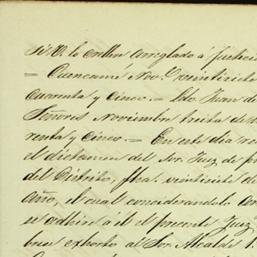 si V. lo cree arreglado á justici
= Cuencamé Nov.e veintisiete
cuarenta y cinco. = Ldo. Juan de
Señores Noviembre treita de
renta y cinco. = En este dia re
el dictamen del Sor. Juez de p
del Distrito, fha. veintisiete de
año, el cual considerandolo co
se adhiere á él el presente Juez
bren exhorto al Sor. Alcalde 1.